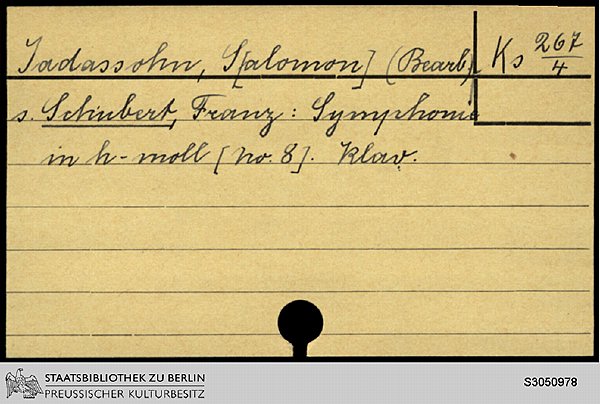 Jadassohn, S[alomon] (Bearb.) Ks 267/4
s. Schubert, Franz: Symphonie
in h-moll [No. 8]. Klav.
STAATSBIBLIOTHEK ZU BERLIN
PREUSSISCHER KULTURBESITZ
S3050978